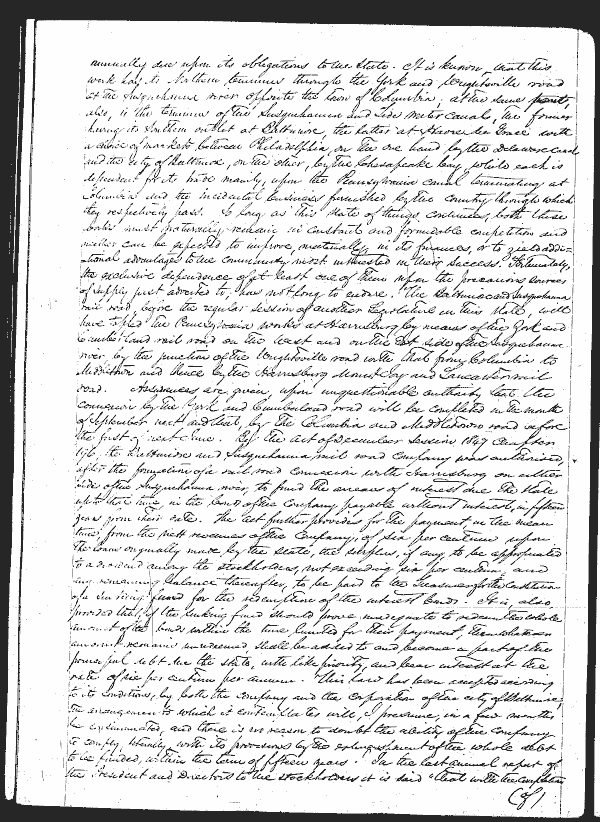 annually due upon its obligations to the State. It is known, that this
work has its Northern terminus through the York and Wrightsville road
at the Susquehanna river opposite the town of Columbia; at the same point,
also, is the terminus of the Susquehanna and Tide Water Canal, the former
having its Southern outlet at Baltimore, the latter at Havre de Grace with
a choice of markets between Philadelphia, on the one hand by the Delaware Canal
and the city of Baltimore, on the other, by the Chesapeake bay, while each is
dependent for its trade mainly, upon the Pennsylvania canal terminating at
Columbia and the incidental business furnished by the country through which
they respectively pass. So long as this state of things continues, both these
works must naturally remain in constant and formidable competition and
neither can be expected to improve, materially in its finances, or to yield addi-
-tional advantages to the community most interested in their success. Fortunately,
the exclusive dependence of at least one of them upon the precarious sources
of supply just adverted to, has not long to endure. The Baltimore and Susquehanna
rail road before the regular session of another Legislature in this State, will
have tapped the Pennsylvania works at Harrisburg by means of the York and
Cumberland rail road on the West and on the East side of the Susquehanna
river, by the junction of the Wrightsville road with that from Columbia to
Middletown and thence by the Harrisburg Mount Joy and Lancaster rail
road. Assurances are given, upon unquestionable authority that the
connexion by the York and Cumberland road will be completed in the month
of September next and that, by the Columbia and Middletown road before
the first of next June. By the act of December Session 1847 Chapter
196, the Baltimore and Susquehanna rail road Company was authorised,
after the formation of a rail road connexion with Harrisburg on either
side of the Susquehanna river, to fund the arrears of interest due the State
up to that time, in the bonds of the Company payable without interest, in fifteen
years from their date. The act further provides for the payment in the mean
time, from the nett revenues of the Company, of six per centum upon
the loans originally made by the State, the surplus, if any, to be appropriated
to a dividend among the stockholders, not exceeding six per centum, and
any remaining balance thereafter, to be paid to the Treasurer for the
of a sinking fund for the redemption of the interest bonds. It is, also
provided that, if the sinking fund should prove inadequate to redeem the whole
amount of the bonds within the time limited for their payment, then whatever
amount remains unredeemed, shall be added to and become a part of the
principal debt due the State, with like priority, and bear interest at the
rate of six per centum per annum. This law has been accepted according
to its conditions, by both the Company and the Corporation of the city of Baltimore;
the arrangement to which it contemplates will, I presume, in a few months
be consummated, and there is no reason to doubt the ability of the Company
to comply, literally with its provisions by the extinguishment of the whole debt
to be funded, within the term of fifteen years. In the last annual report of
the President and Directors to the stockholders it is said "that with the completion
(of)